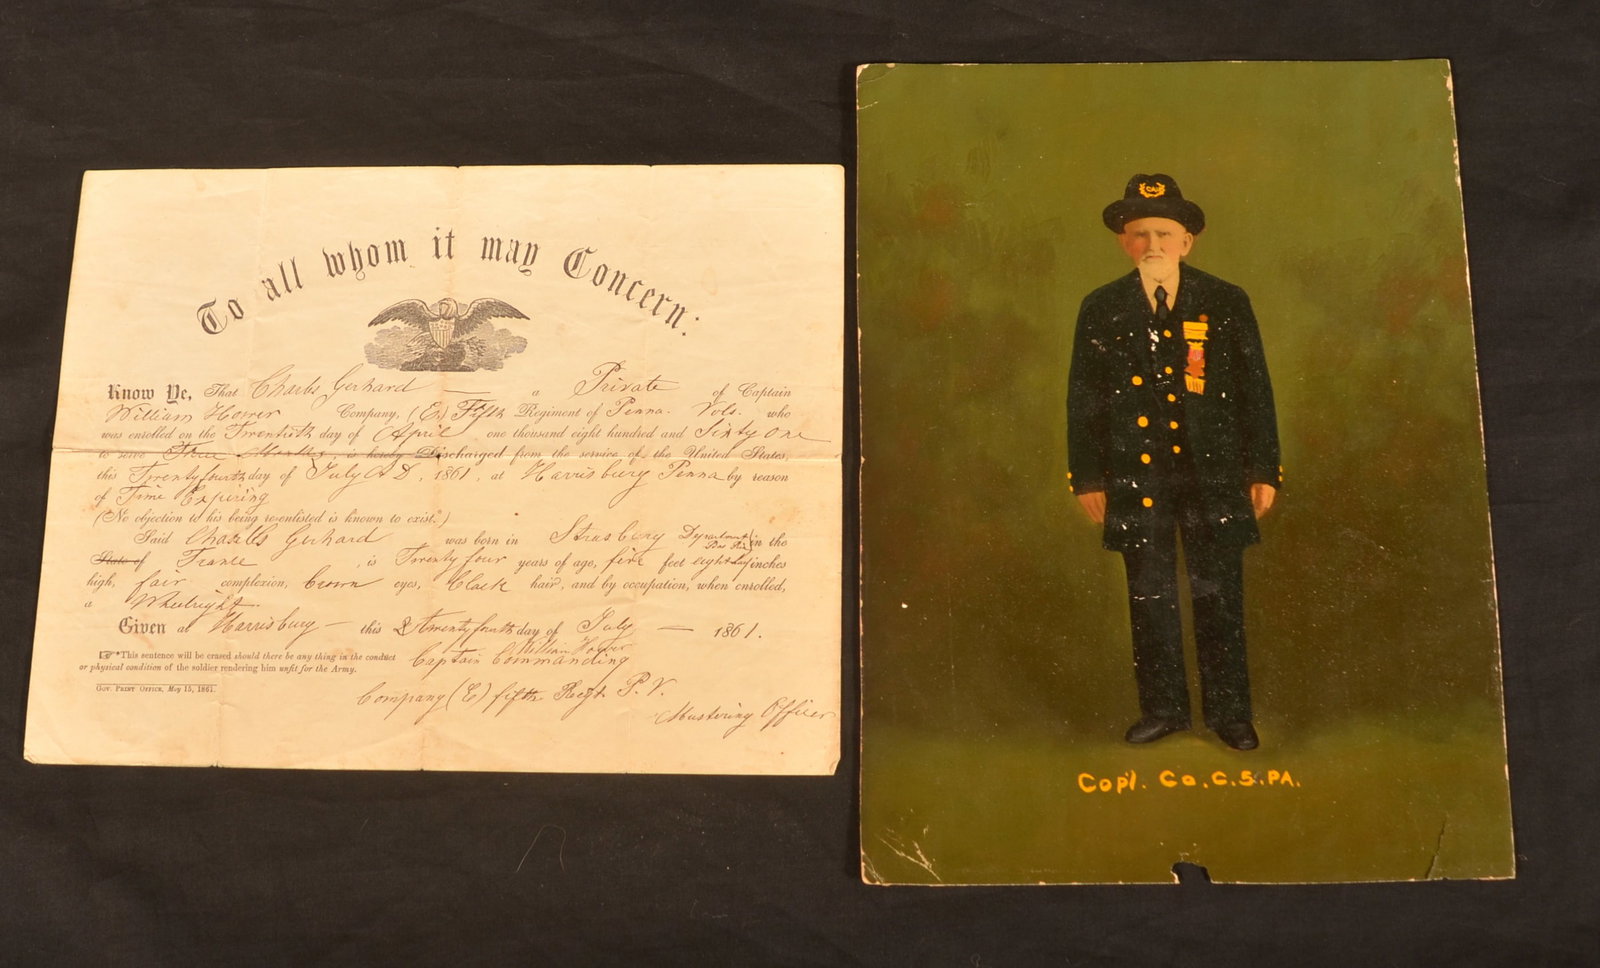 To all whom it may Concern:
Know Ye, That Charles Gerhard a Private of Captain
William Hoover Company, (E,) Fifth Regiment of Penna. Vols. who
was enrolled on the Twentieth day of April one thousand eight hundred and Sixty One
to serve Three Months, is hereby Discharged from the service of the United States,
this Twenty fourth day of July A D, 1861, at Harrisburg Penna by reason
of Time Expiring
(No objection to his being re-enlisted is known to exist.*)
Said Charles Gerhard was born in Strasburg Department in the
State of France, is Twenty four years of age, five feet eight inches
high, fair complexion, brown eyes, black hair, and by occupation, when enrolled,
a Wheelright
Given at Harrisburg this Twenty fourth day of July 1861.
William Hoover
☞ *This sentence will be erased should there be any thing in the conduct
or physical condition of the soldier rendering him unfit for the Army.
Captain Commanding
Gov. Print Office, May 15, 1861.
Company (E) fifth Regt. P. V.
Mustering Officer
Copl. Co. C. 5. PA.